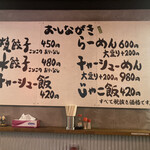 おしながき
焼餃子 450円
こだわり おかべぶた
水餃子 480円
こだわり おかべぶた
チャーシュー飯
420円
らーめん 600円
大盛り+200円
チャーシューめん
大盛り+200 980円
じゃこ飯 420円
すべて税抜き価格です。